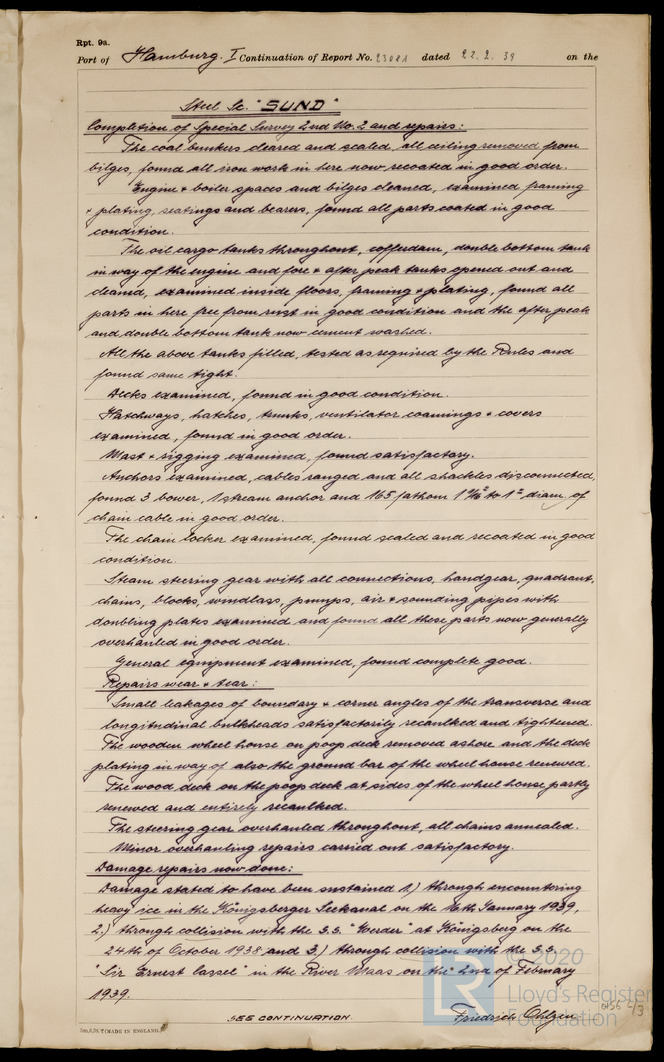 Rpt. 9a.
Port of Hamburg. I Continuation of Report No. 23021 dated 22.2.39 on the
Steel Sc. "SUND"
Completion of Special Survey 2nd No. 2 and repairs:
The coal bunkers cleared and scaled, all ceiling removed from
bilges, found all iron work in here now recoated in good order.
Engine & boiler spaces and bilges cleaned, examined framing
& plating, seatings and bearers, found all parts coated in good
condition.
The oil cargo tanks throughout, cofferdam, double bottom tank
in way of the engine and fore & after peak tanks opened out and
cleaned, examined inside floors, framing & plating, found all
parts in here free from rust in good condition and the after peak
and double bottom tank now cement washed.
All the above tanks filled, tested as required by the Rules and
found same tight.
Decks examined, found in good condition.
Hatchways, hatches, trunks, ventilator coamings & covers
examined, found in good order.
Mast & rigging examined, found satisfactory.
Anchors examined, cables ranged and all shackles disconnected,
found 3 bower, 1 stream anchor and 165 fathom to diam. of
chain cable in good order.
The chain locker examined, found scaled and recoated in good
condition.
Steam steering gear with all connections, handgear, quadrant,
chains, blocks, windlass, pumps, air & sounding pipes with
doubling plates examined and found all these parts now generally
overhauled in good order.
General equipment examined, found complete good.
Repairs wear & tear:
Small leakages of boundary & corner angles of the transverse and
longitudinal bulkheads satisfactorily recaulked and tightened.
The wooden wheel house on poop deck removed ashore and the deck
plating in way of also the ground bar of the wheel house renewed.
The wood deck on the poop deck at sides of the wheel house partly
renewed and entirely recaulked.
The steering gear overhauled throughout, all chains annealed.
Minor overhauling repairs carried out satisfactory.
Damage repairs now done:
Damage stated to have been sustained 1.) through encountering
heavy ice in the Königsberger Seekanal on the 16th January 1939,
2.) through collision with the S.S. "Werder" at Königsberg on the
24th of October 1938 and 3.) through collision with the S.S.
"Sir Ernest Cassel" in the River Maas on the 2nd of February
1939.
SEE CONTINUATION.
Friedrich
(MADE IN ENGLAND.)
© 2020
Lloyd's Register
Foundation